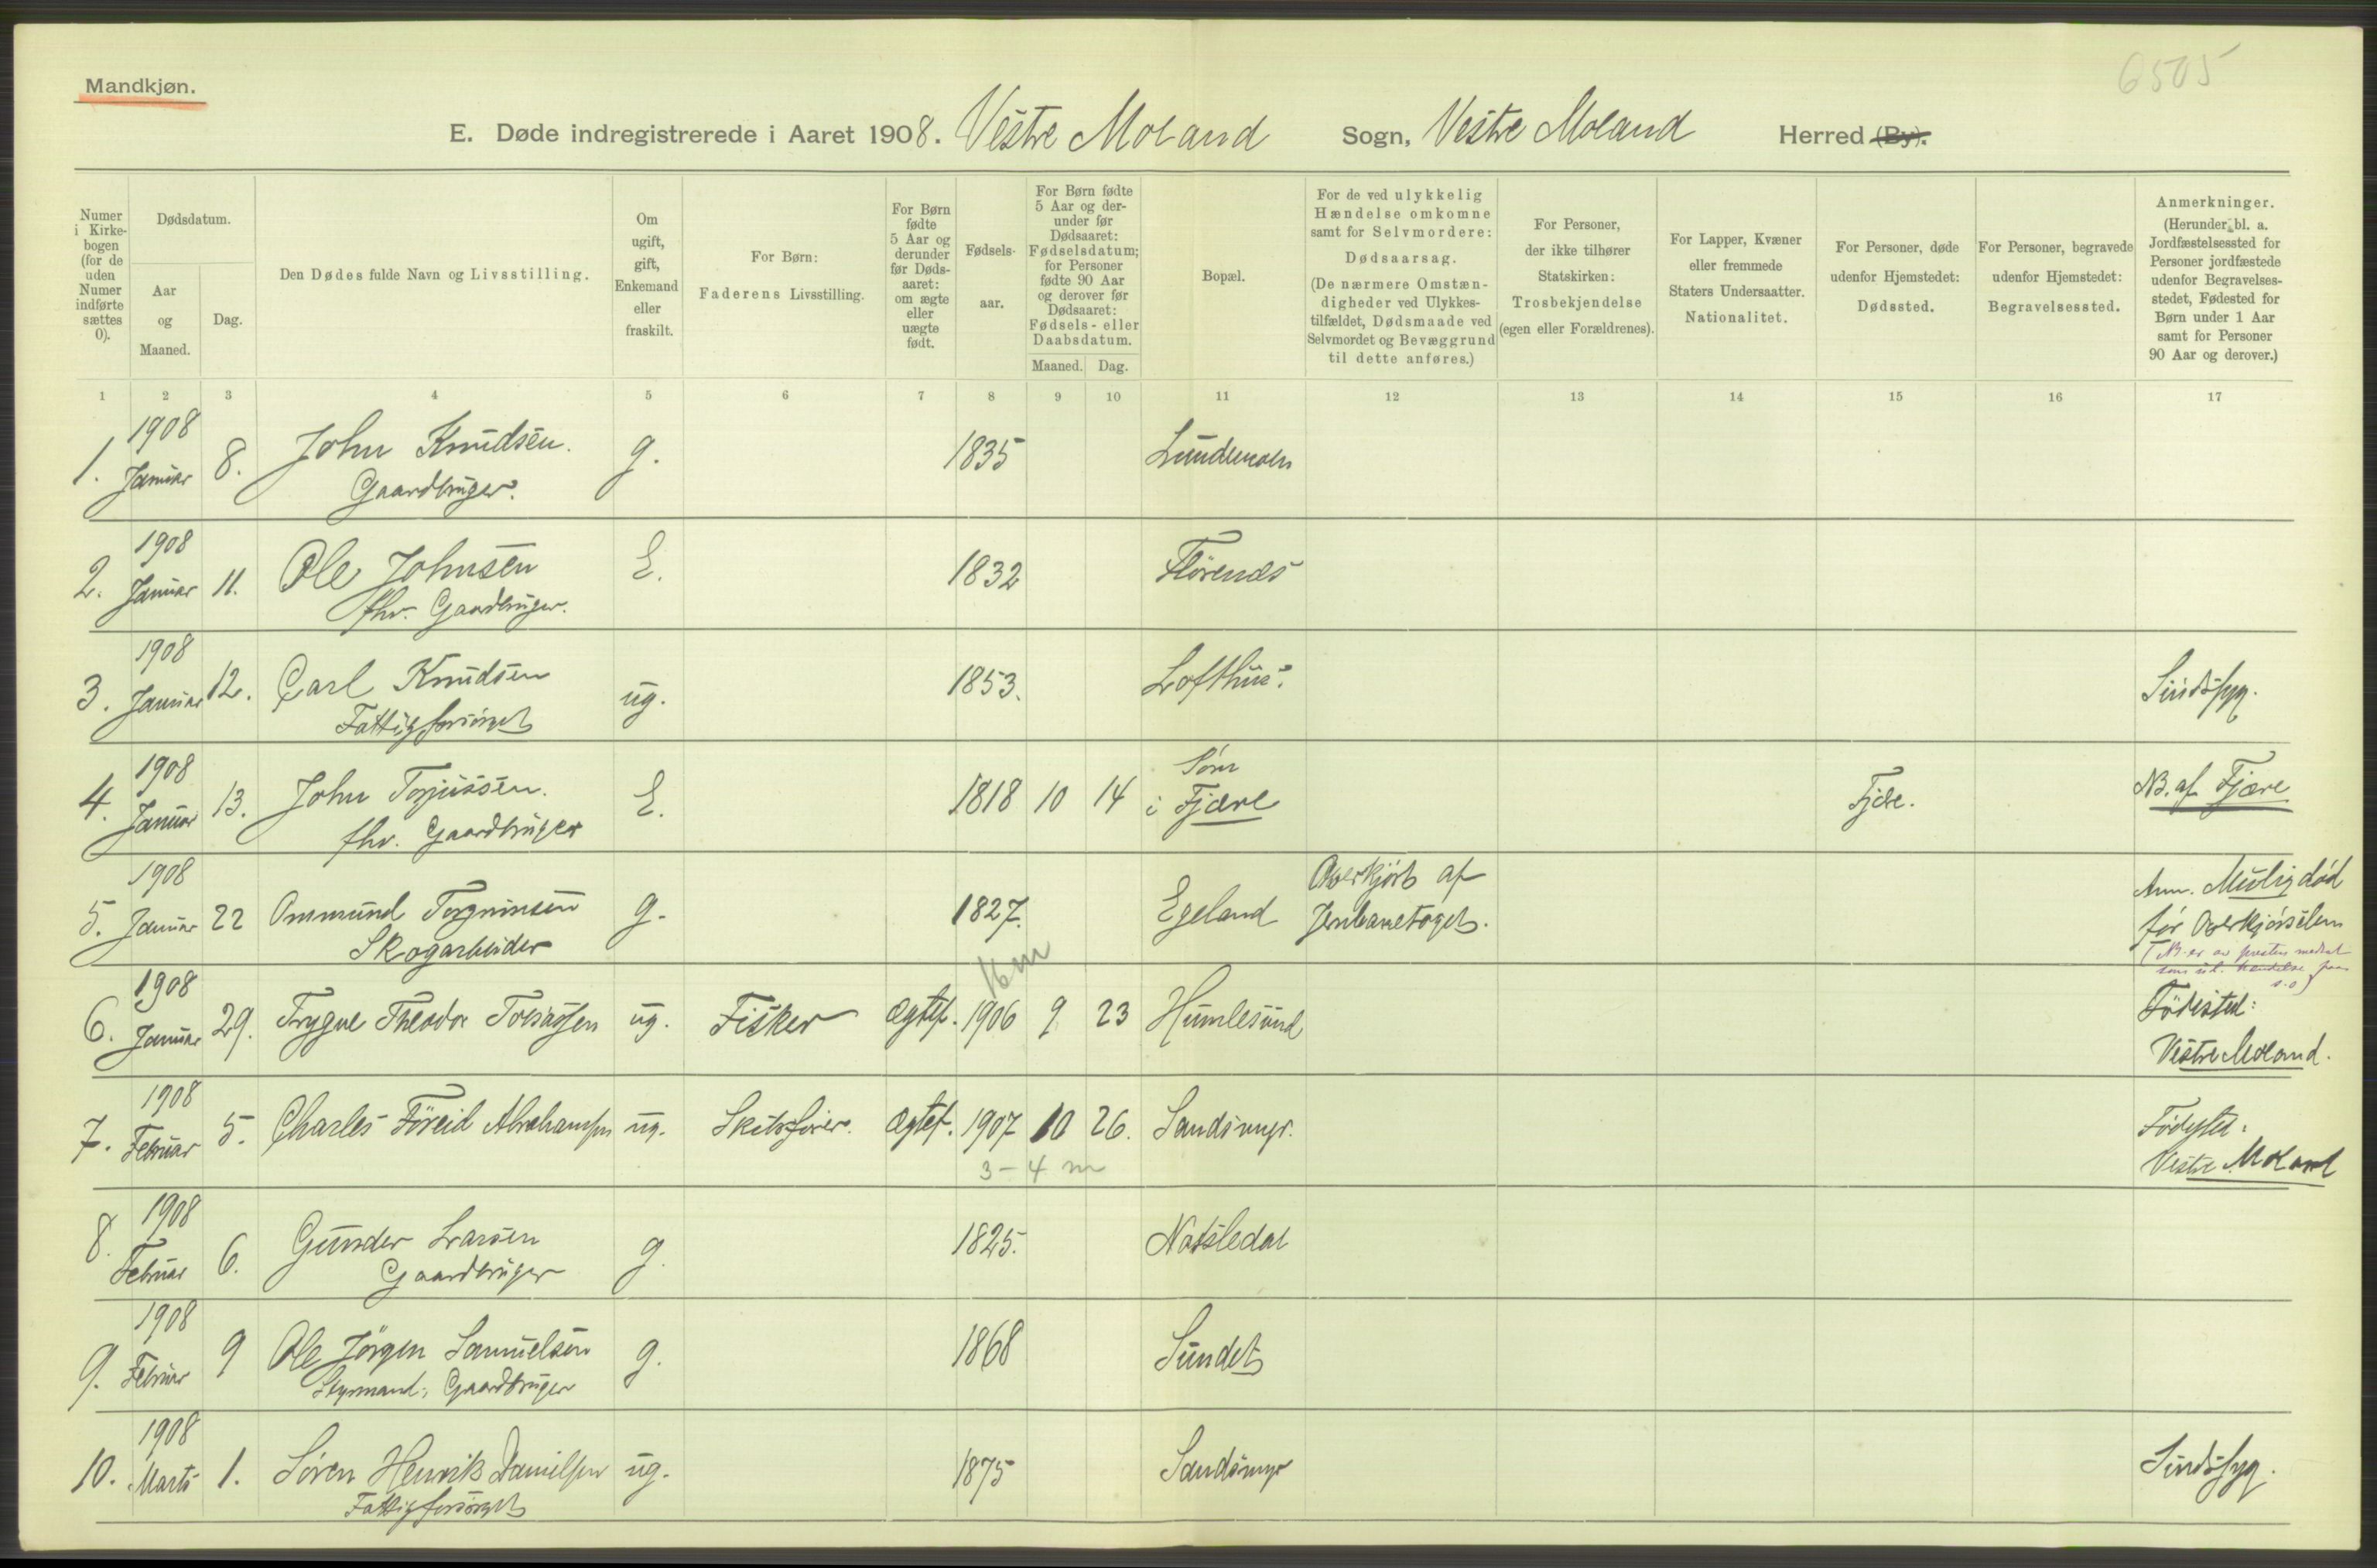 6505
Mandkjøn.
E. Døde indregistrerede i Aaret 1908. Vestre Moland Sogn, Vestre Moland Herred (By).
Numer
i Kirke-
bogen
(for de
uden
Numer
indførte
sættes
0).
Dødsdatum.
Aar
og
Maaned.
Dag.
Den Dødes fulde Navn og Livsstilling.
Om
ugift,
gift,
Enkemand
eller
fraskilt.
For Børn:
Faderens Livsstilling.
For Børn
fødte
5 Aar og
derunder
før Døds-
aaret:
om ægte
eller
uægte
født.
Fødsels-
aar.
For Børn fødte
5 Aar og der-
under før
Dødsaaret:
Fødselsdatum;
for Personer
fødte 90 Aar
og derover før
Dødsaaret:
Fødsels- eller
Daabsdatum.
Maaned. Dag.
Bopæl.
For de ved ulykkelig
Hændelse omkomne
samt for Selvmordere:
Dødsaarsag.
(De nærmere Omstæn-
digheder ved Ulykkes-
tilfældet, Dødsmaade ved
Selvmordet og Bevæggrund
til dette anføres.)
For Personer,
der ikke tilhører
Statskirken:
Trosbekjendelse
(egen eller Forældrenes).
For Lapper, Kvæner
eller fremmede
Staters Undersaatter.
Nationalitet.
For Personer, døde
udenfor Hjemstedet:
Dødssted.
For Personer, begravede
udenfor Hjemstedet:
Begravelsessted.
Anmerkninger.
(Herunder bl. a.
Jordfæstelsessted for
Personer jordfæstede
udenfor Begravelses-
stedet, Fødested for
Børn under 1 Aar
samt for Personer
90 Aar og derover.)
1 2 3 4 5 6 7 8 9 10 11 12 13 14 15 16 17
1908
1. Januar 8. John Knudsen. g. 1835
Gaardbruger.
1908
2. Januar 11. Ole Johnsen E. 1832
fhv. Gaardbruger.
1908
3. Januar 12. Carl Knudsen ug. 1853. Lofthus. Sindssyg.
Fattigforsørget
1908
4. Januar 13. John Torjussen. E. 1818 10 14 i Fjære Fjære. NB. af Fjære
fhv. Gaardbruger
1908
5. Januar 22 Ommund g. 1827. Egeland
Skogarbeider
Overkjørt af
Jernbanetoget.
Anm. Mulig død
før Overkjørselen
16 m
1908
6. Januar 29. Trygve Theodor ug. Fisker Ægtef. 1906 9 23 Humlesund
Fødested:
Vestre Moland.
1908
7. Februar 5. Charles Abrahamsen ug. Skibsfører. Ægtef. 1907 10 26. Sandsmyr.
3-4 m
Fødested:
Vestre Moland
1908
8. Februar 6. Gunder Larsen g. 1825.
Gaardbruger
1908
9. Februar 9 Ole Jørgen Samuelsen g. 1868 Sundet
Styrmand, Gaardbruger
1908
10. Marts 1. Søren Henrik Danielsen ug. 1875 Sandsmyr Sindssyg.
Fattigforsørget